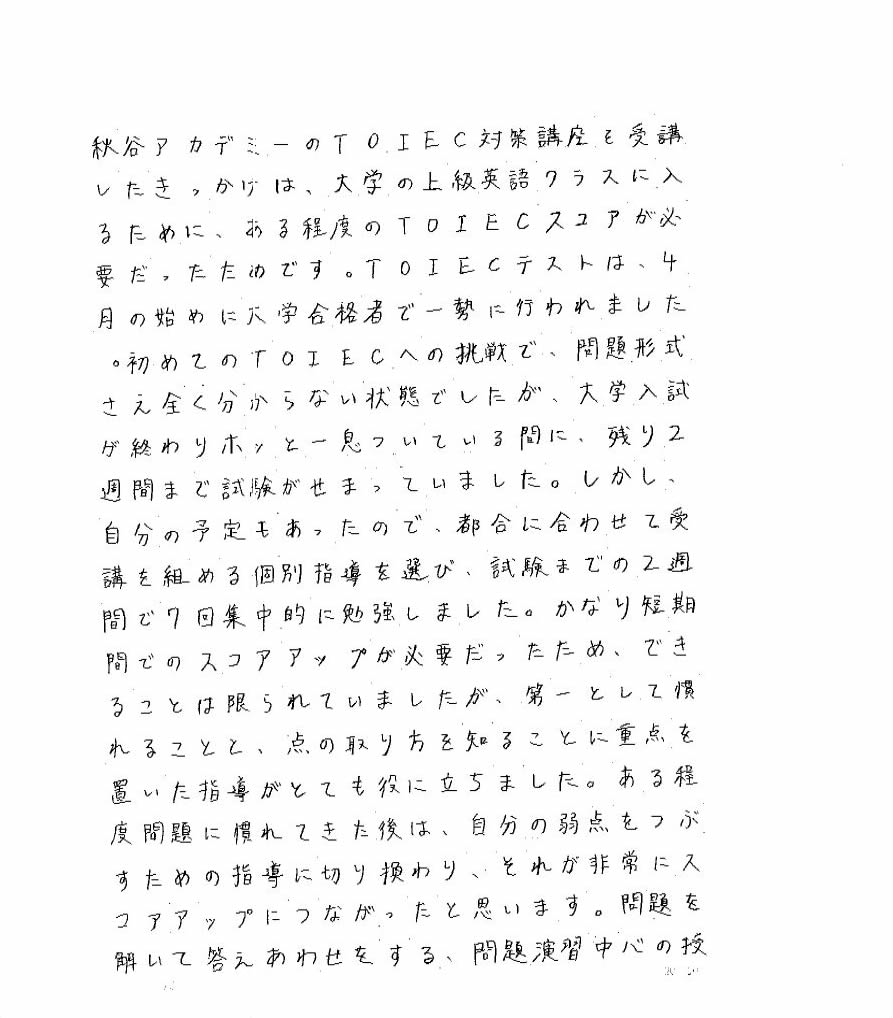 秋谷アカデミーのTOIEC対策講座を受講
したきっかけは、大学の上級英語クラスに入
るために、ある程度のTOIECスコアが必
要だったためです。TOIECテストは、4
月の始めに大学合格者で一勢に行われました
。初めてのTOIECへの挑戦で、問題形式
さえ全く分からない状態でしたが、大学入試
が終わりホッと一息ついている間に、残り2
週間まで試験がせまっていました。しかし、
自分の予定もあったので、都合に合わせて受
講を組める個別指導を選び、試験までの2週
間で7回集中的に勉強しました。かなり短期
間でのスコアアップが必要だったため、でき
ることは限られていましたが、第一として慣
れることと、点の取り方を知ることに重点を
置いた指導がとても役に立ちました。ある程
度問題に慣れてきた後は、自分の弱点をつぶ
すための指導に切り換わり、それが非常にス
コアアップにつながったと思います。問題を
解いて答えあわせをする、問題演習中心の授